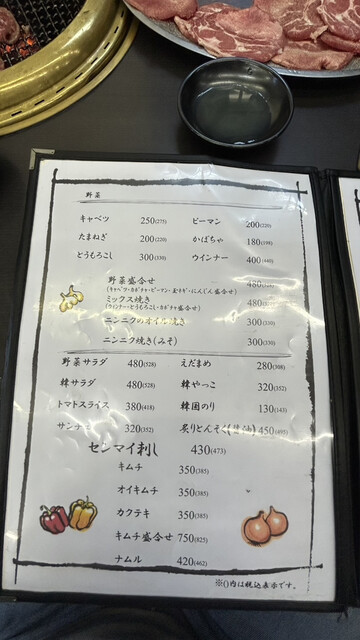 野菜
キャベツ 250(275) ピーマン 200(220)
たまねぎ 200(220) かぼちゃ 180(198)
とうもろこし 300(330) ウインナー 400(440)
野菜盛合せ 480(528)
(キャベツ・カボチャ・ピーマン・玉ネギ・にんじん盛合せ)
ミックス焼き 480
(ウインナー・とうもろこし・カボチャ盛合せ)
ニンニクのオイル焼き 300(330)
ニンニク焼き(みそ) 300(330)
野菜サラダ 480(528) えだまめ 280(308)
韓サラダ 480(528) 韓やっこ 320(352)
トマトスライス 380(418) 韓国のり 130(143)
サンチュ 320(352) 炙りとんそく 450(495)
センマイ刺し 430(473)
キムチ 350(385)
オイキムチ 350(385)
カクテキ 350(385)
キムチ盛合せ 750(825)
ナムル 420(462)
※()内は税込表示です。